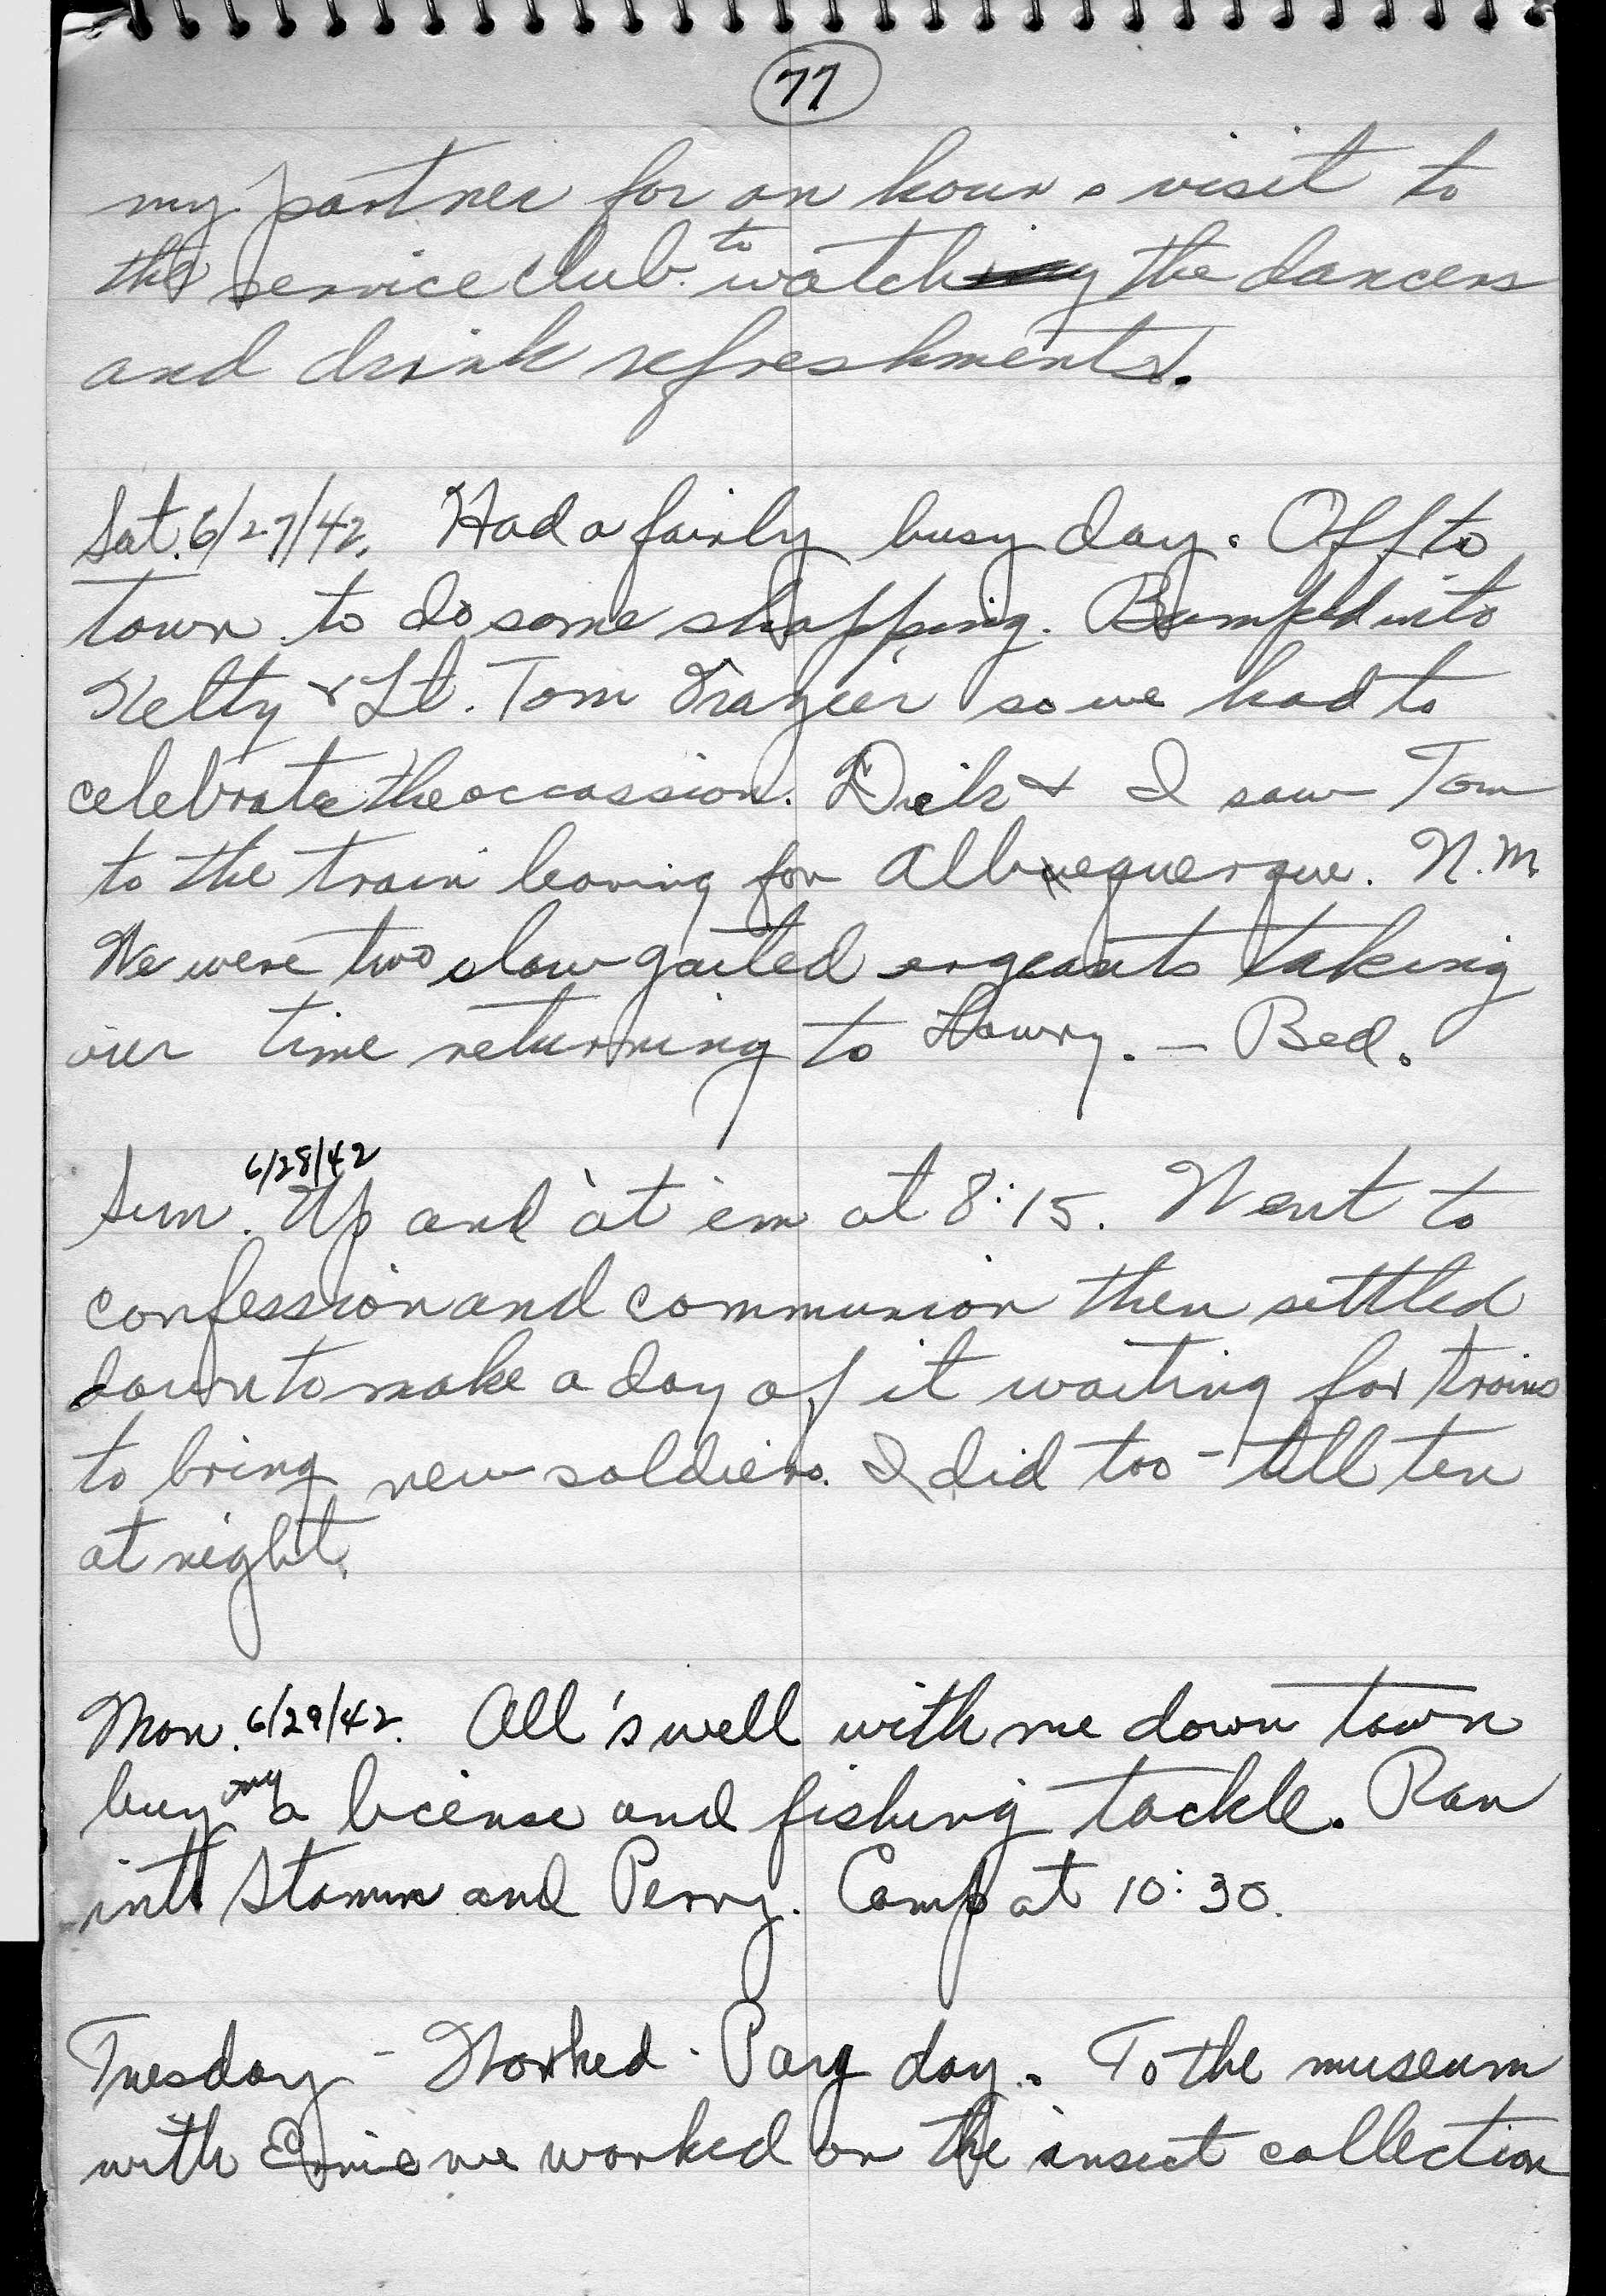 77
my partner for an hour a visit to
the service club to watch the dancers
and drink refreshments.
Sat. 6/27/42. Had a fairly busy day. Off to
town to do some shopping. Bumped into
Kelty & Lt. Tom Frazier so we had to
celebrate the occassion. Dick & I saw Tom
to the train leaving for Albuequerque. N.M.
We were two slow gaited sergeants taking
our time returning to Lowry. - Bed.
6/28/42
Sun. Up and 'at 'em at 8:15. Went to
confession and communion then settled
down to make a day of it waiting for trains
to bring new soldiers. I did too - till ten
at night.
Mon. 6/29/42. All's well with me down town
buying a license and fishing tackle. Ran
into Stamm and Perry. Camp at 10:30.
Tuesday - Worked. Pay day. To the museum
with Ernie we worked on the insect collection